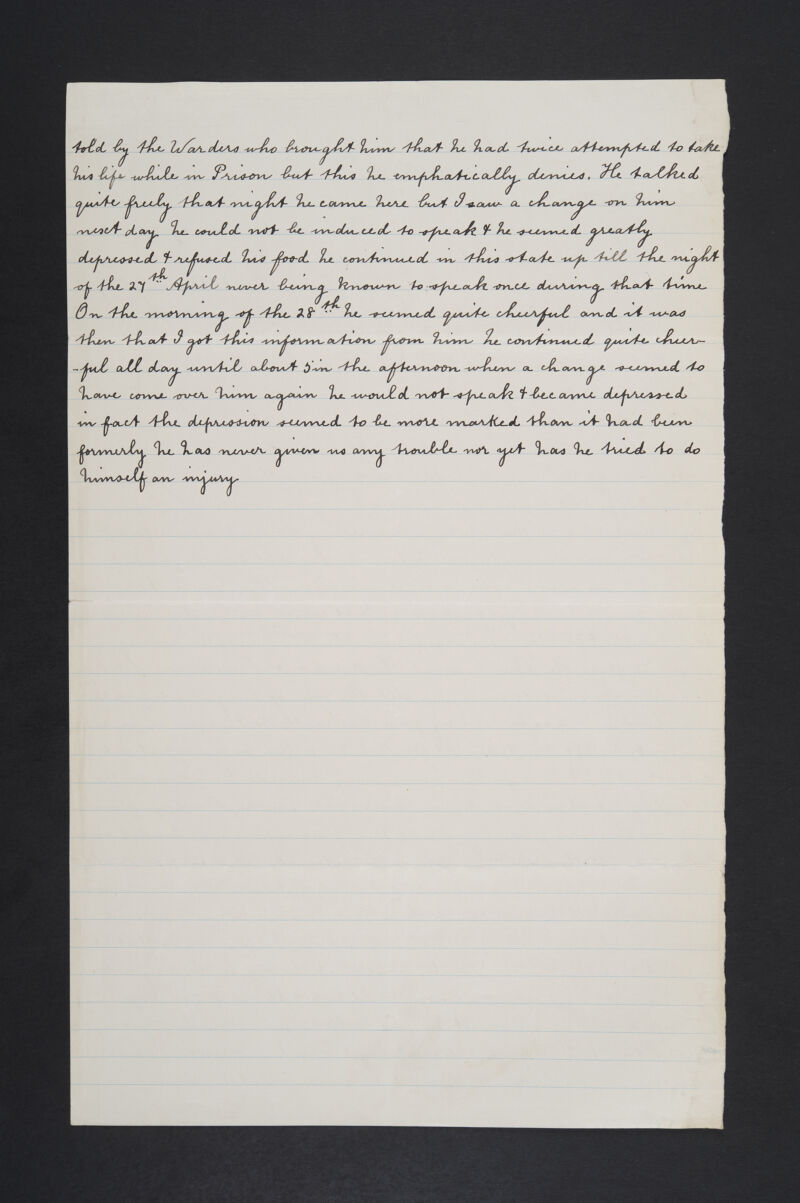 told by the Warders who brought him that he had twice attempted to take
his life while in Prison but this he emphatically denies. He talked
quite freely that night he came here but I saw a change on him
next day he could not be induced to speak & he seemed greatly
depressed & refused his food he continued in this state up till the night
of the 27th April never being known to speak once during that time
On the morning of the 28th he seemed quite cheerful and it was
then that I got this information from him he continued quite cheer-
-ful all day until about 5 in the afternoon when a change seemed to
have come over him again he would not speak & became depressed
in fact the depression seemed to be more marked than it had been
formerly he has never given us any trouble nor yet has he tried to do
himself an injury